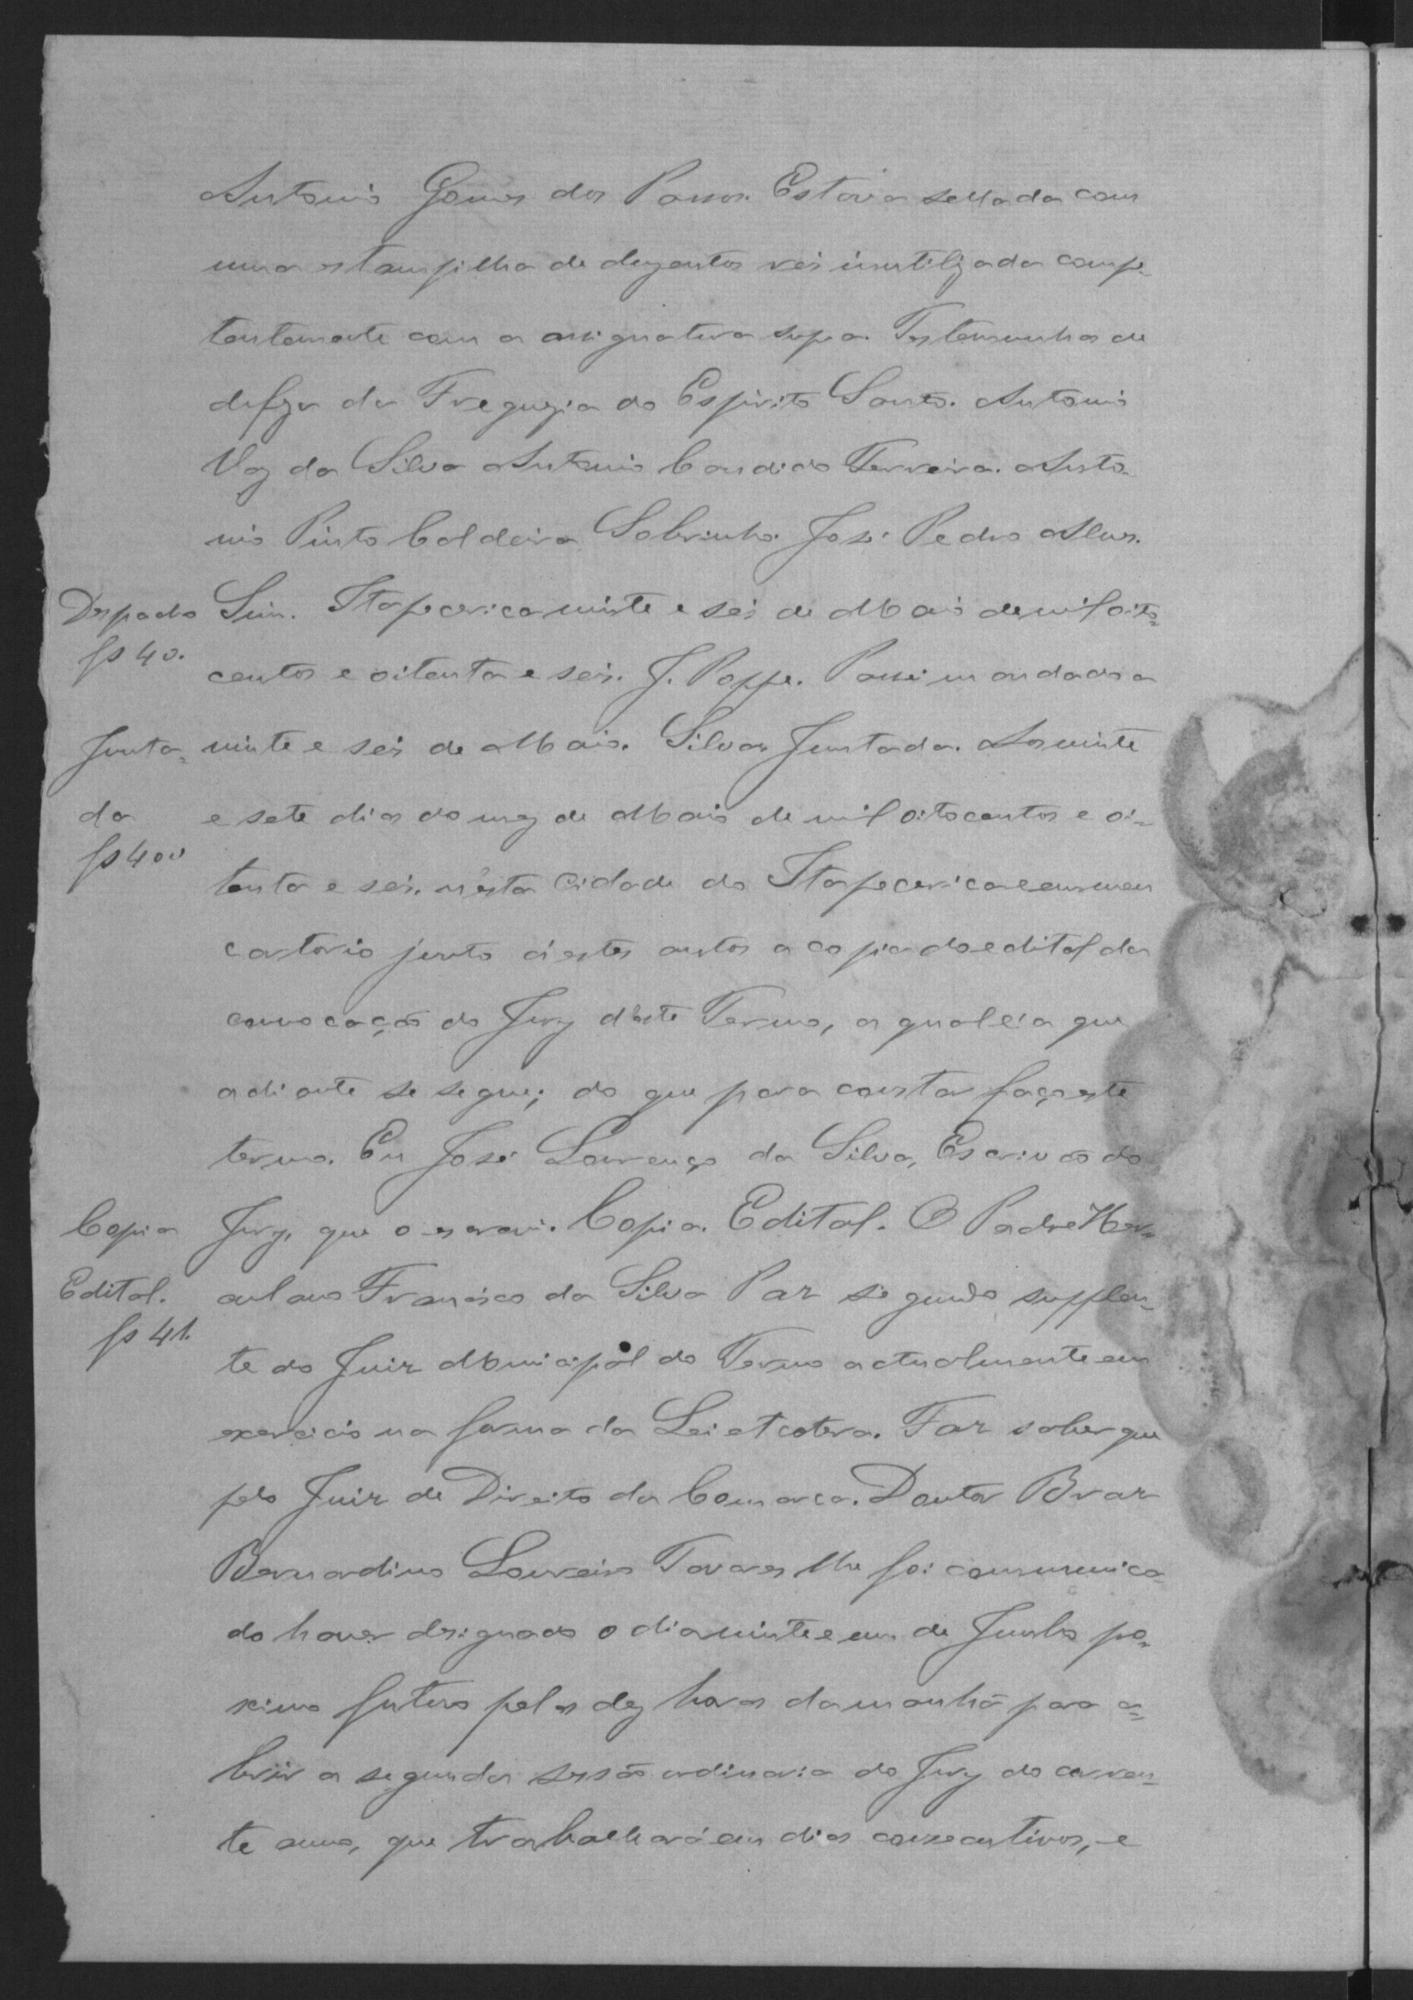 Antonio Gomes dos Passos. Estava sellada com
uma estampilha de duzentos reis inutilizada compe-
tentemente com a assignatura supra. Testemunhas de
defeza da Freguezia do Espirito Santo. Antonio
Vaz da Silva Antonio Candido Ferreira. Anto-
nio Pinto Caldeira Sobrinho. José Pedro Alves.
Despacho Sim. Itapecerica vinte e seis de Maio de mil oito-
fs 40. centos e oitenta e seis. J. Poppe. Passei mandado a
Junta- vinte e seis de Maio. Silva. Juntada. Aos vinte
da e sete dias do mez de Maio de mil oitocentos e oi-
fs 40v tenta e seis. n'esta Cidade do Itapecerica e em meu
cartorio junto á estes autos a copia do edital da
convocação do Jury d'este Termo, a qual é a que
adiante se segue; do que para constar faço este
termo. Eu José Lourenço da Silva, Escrivão do
Copia Jury, que o escrevi. Copia. Edital. O Padre Her-
Edital. culano Francisco da Silva Par segundo supplen-
fs 41. te do Juir Municipal do Termo actualmente em
exercicio na forma da Lei etcetera. Far saber que
pelo Juir de Direito da Comarca. Doutor Brar
Bernardino Loureiro Tavares lhe foi communica-
do haver designado o dia vinte e um de Junho pro-
ximo futuro pelas dez horas da manhã para a-
brir a segunda sessão ordinaria do Jury do corren-
te anno, que trabalhará em dias consecutivos, e